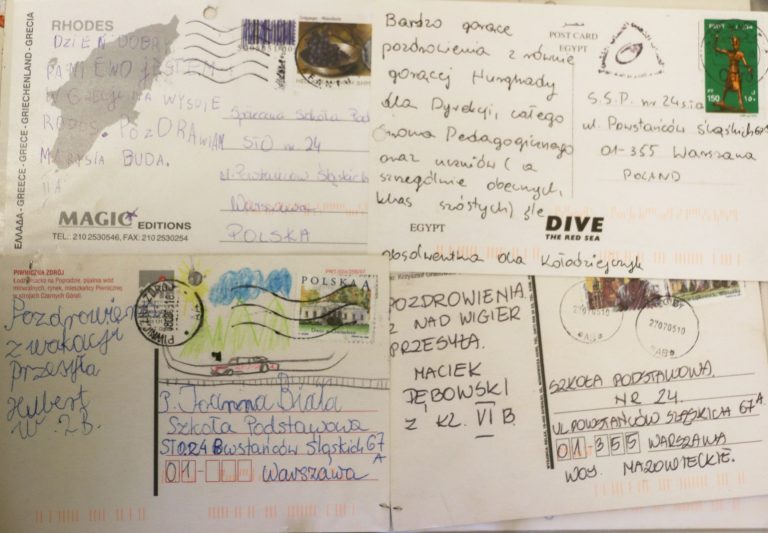 ΕΛΛΑΔΑ - GREECE - GRECE - GRIECHENLAND - GRECIA
RHODES
DZIEŃ DOBRY
PANI EWO JESTEM
W GRECJI NA WYSPIE
RODOS. POZDRAWIAM
MARYSIA BUDA.
MAGIC EDITIONS
TEL.: 210 2530546, FAX. 210 2530254
Społeczna Szkoła Pod
STO nr. 24
ul. Powstańców Śląskich
Warszawa
POLSKA
Bardzo gorące
pozdrowienia z równie
gorącej Hurghady
dla Dyrekcji, całego
Grona Pedagogicznego
oraz uczniów (a
szczególnie obecnych
klas szóstych) śle
absolwentka Ola Kołodziejczyk
EGYPT
POST CARD
EGYPT
150
S.S.P. nr 24
ul. Powstańców Śląskich 67
01-355 Warszawa
POLAND
DIVE
THE RED SEA
PIWNICZNA ZDRÓJ
Pozdrowienia
z wakacji
przesyła
Hubert
W. 2B.
POLSKA A
P. Joanna Biała
Szkoła Podstawowa
STO 24 Powstańców Śląskich 67
A
01- Warszawa
POZDROWIENIA
Z NAD WIGIER
PRZESYŁA.
MACIEK
DĘBOWSKI
Z KL. VI B.
27070510
SZKOŁA PODSTAWOWA
NR 24.
UL POWSTAŃCÓW ŚLĄSKICH 67A
01-355 WARSZAWA
WOJ. MAZOWIECKIE.